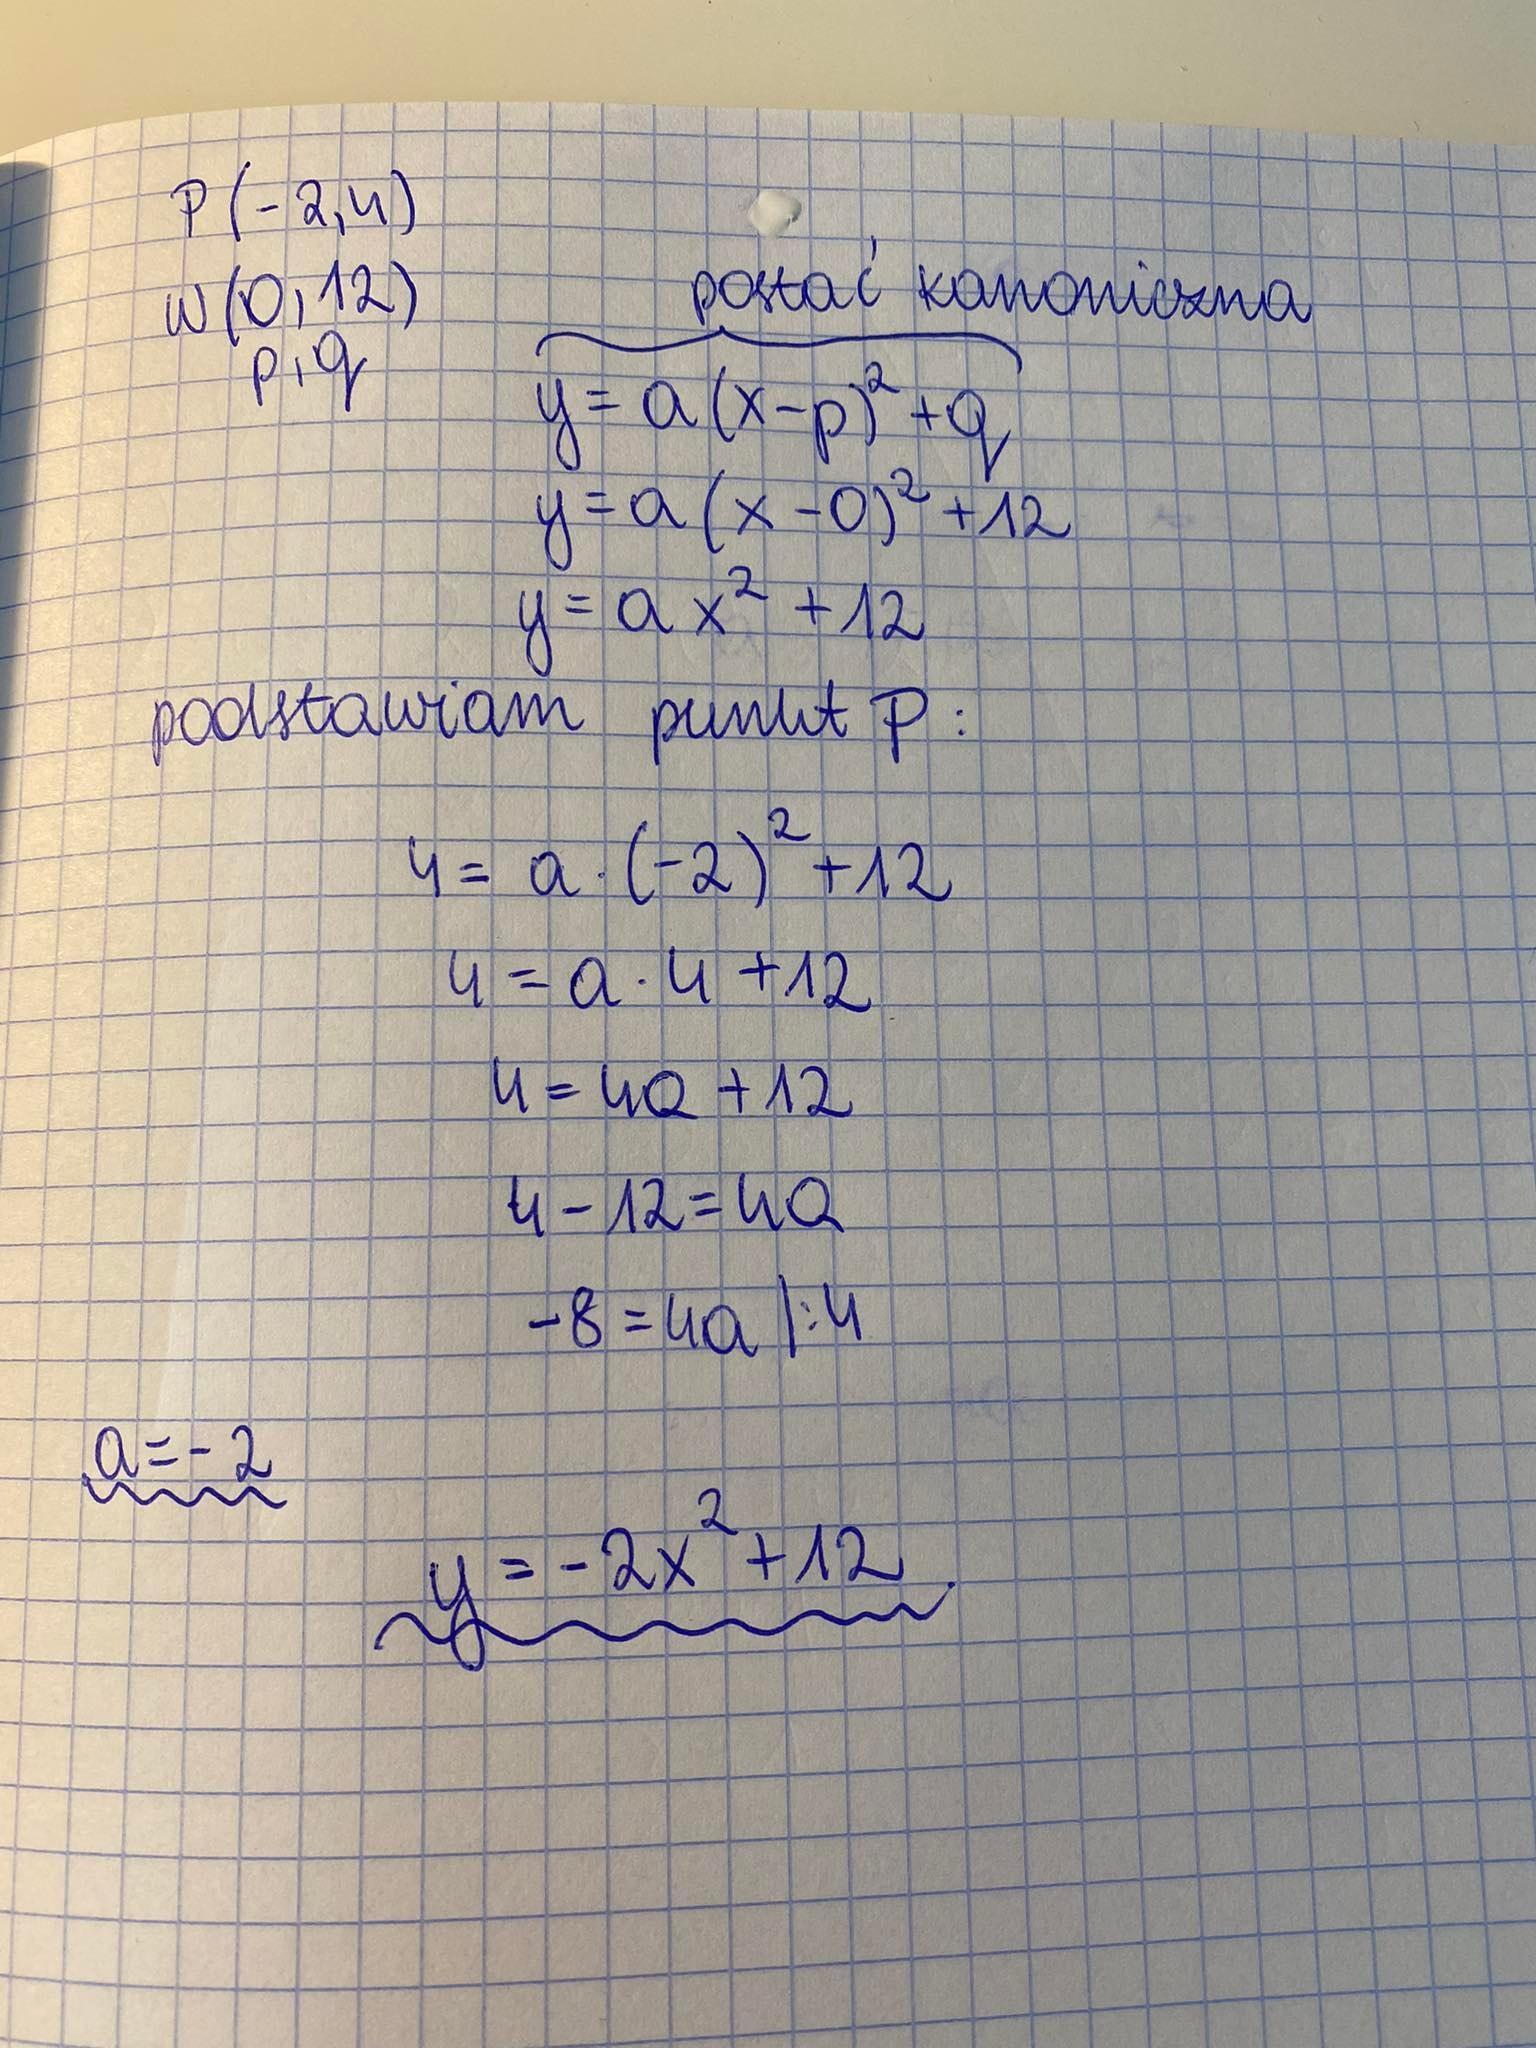 P(-2,4)
W(0,12)
p,q
postać kanoniczna
y=a(x-p)²+q
y=a(x-0)²+12
y=ax²+12
podstawiam punkt P:
4=a·(-2)²+12
4=a·4+12
4=4a+12
4-12=4a
-8=4a |:4
a=-2
y=-2x²+12